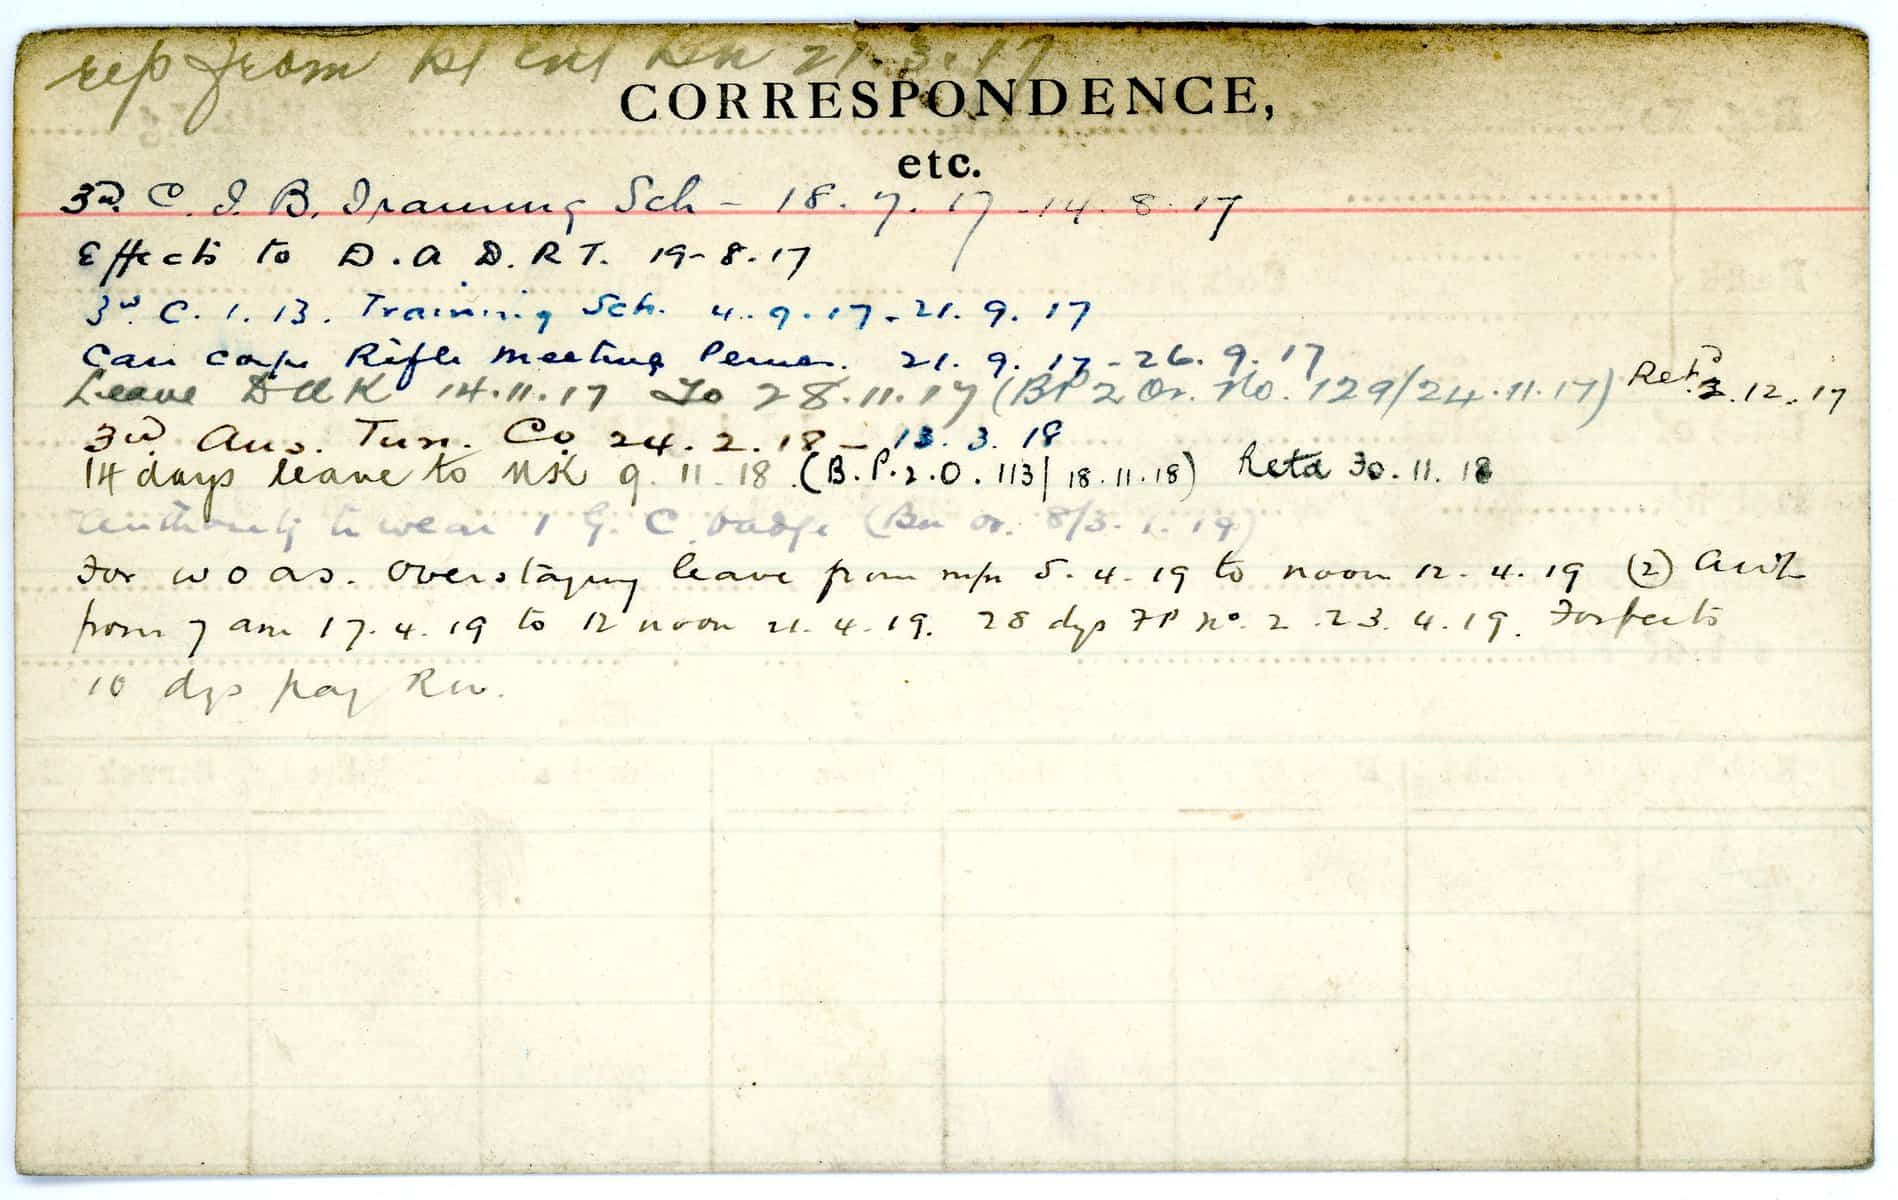 rep from 1st Ent Bn 21.3.17
CORRESPONDENCE,
etc.
3rd. C. I. B. Training Sch - 18. 7. 17 - 14. 8. 17
Effects to D. A. D. R. T. 19-8.17
3rd. C. I. B. Training Sch. 4. 9. 17 - 21. 9. 17
Can Corps Rifle Meeting Pernes. 21. 9. 17 - 26. 9. 17
Leave D U K 14.11.17 To 28.11.17 (BP 2 Or. No. 129/24.11.17) Retd 2.12.17
3rd Aus. Tun. Co. 24. 2. 18 - 13. 3. 18
14 days leave to UK 9. 11. 18 (B. P. 2. O. 113/18.11.18) Retd 30. 11. 18
Authority to wear 1 G. C. badge (Bn Or. 8/3. 1. 19)
For W O A S. Overstaying leave from m/n 5. 4. 19 to noon 12. 4. 19 (2) AWL
from 7 am 17. 4. 19 to 12 noon 21. 4. 19. 28 dys FP No. 2. 23. 4. 19. Forfeits
10 dys pay RW.